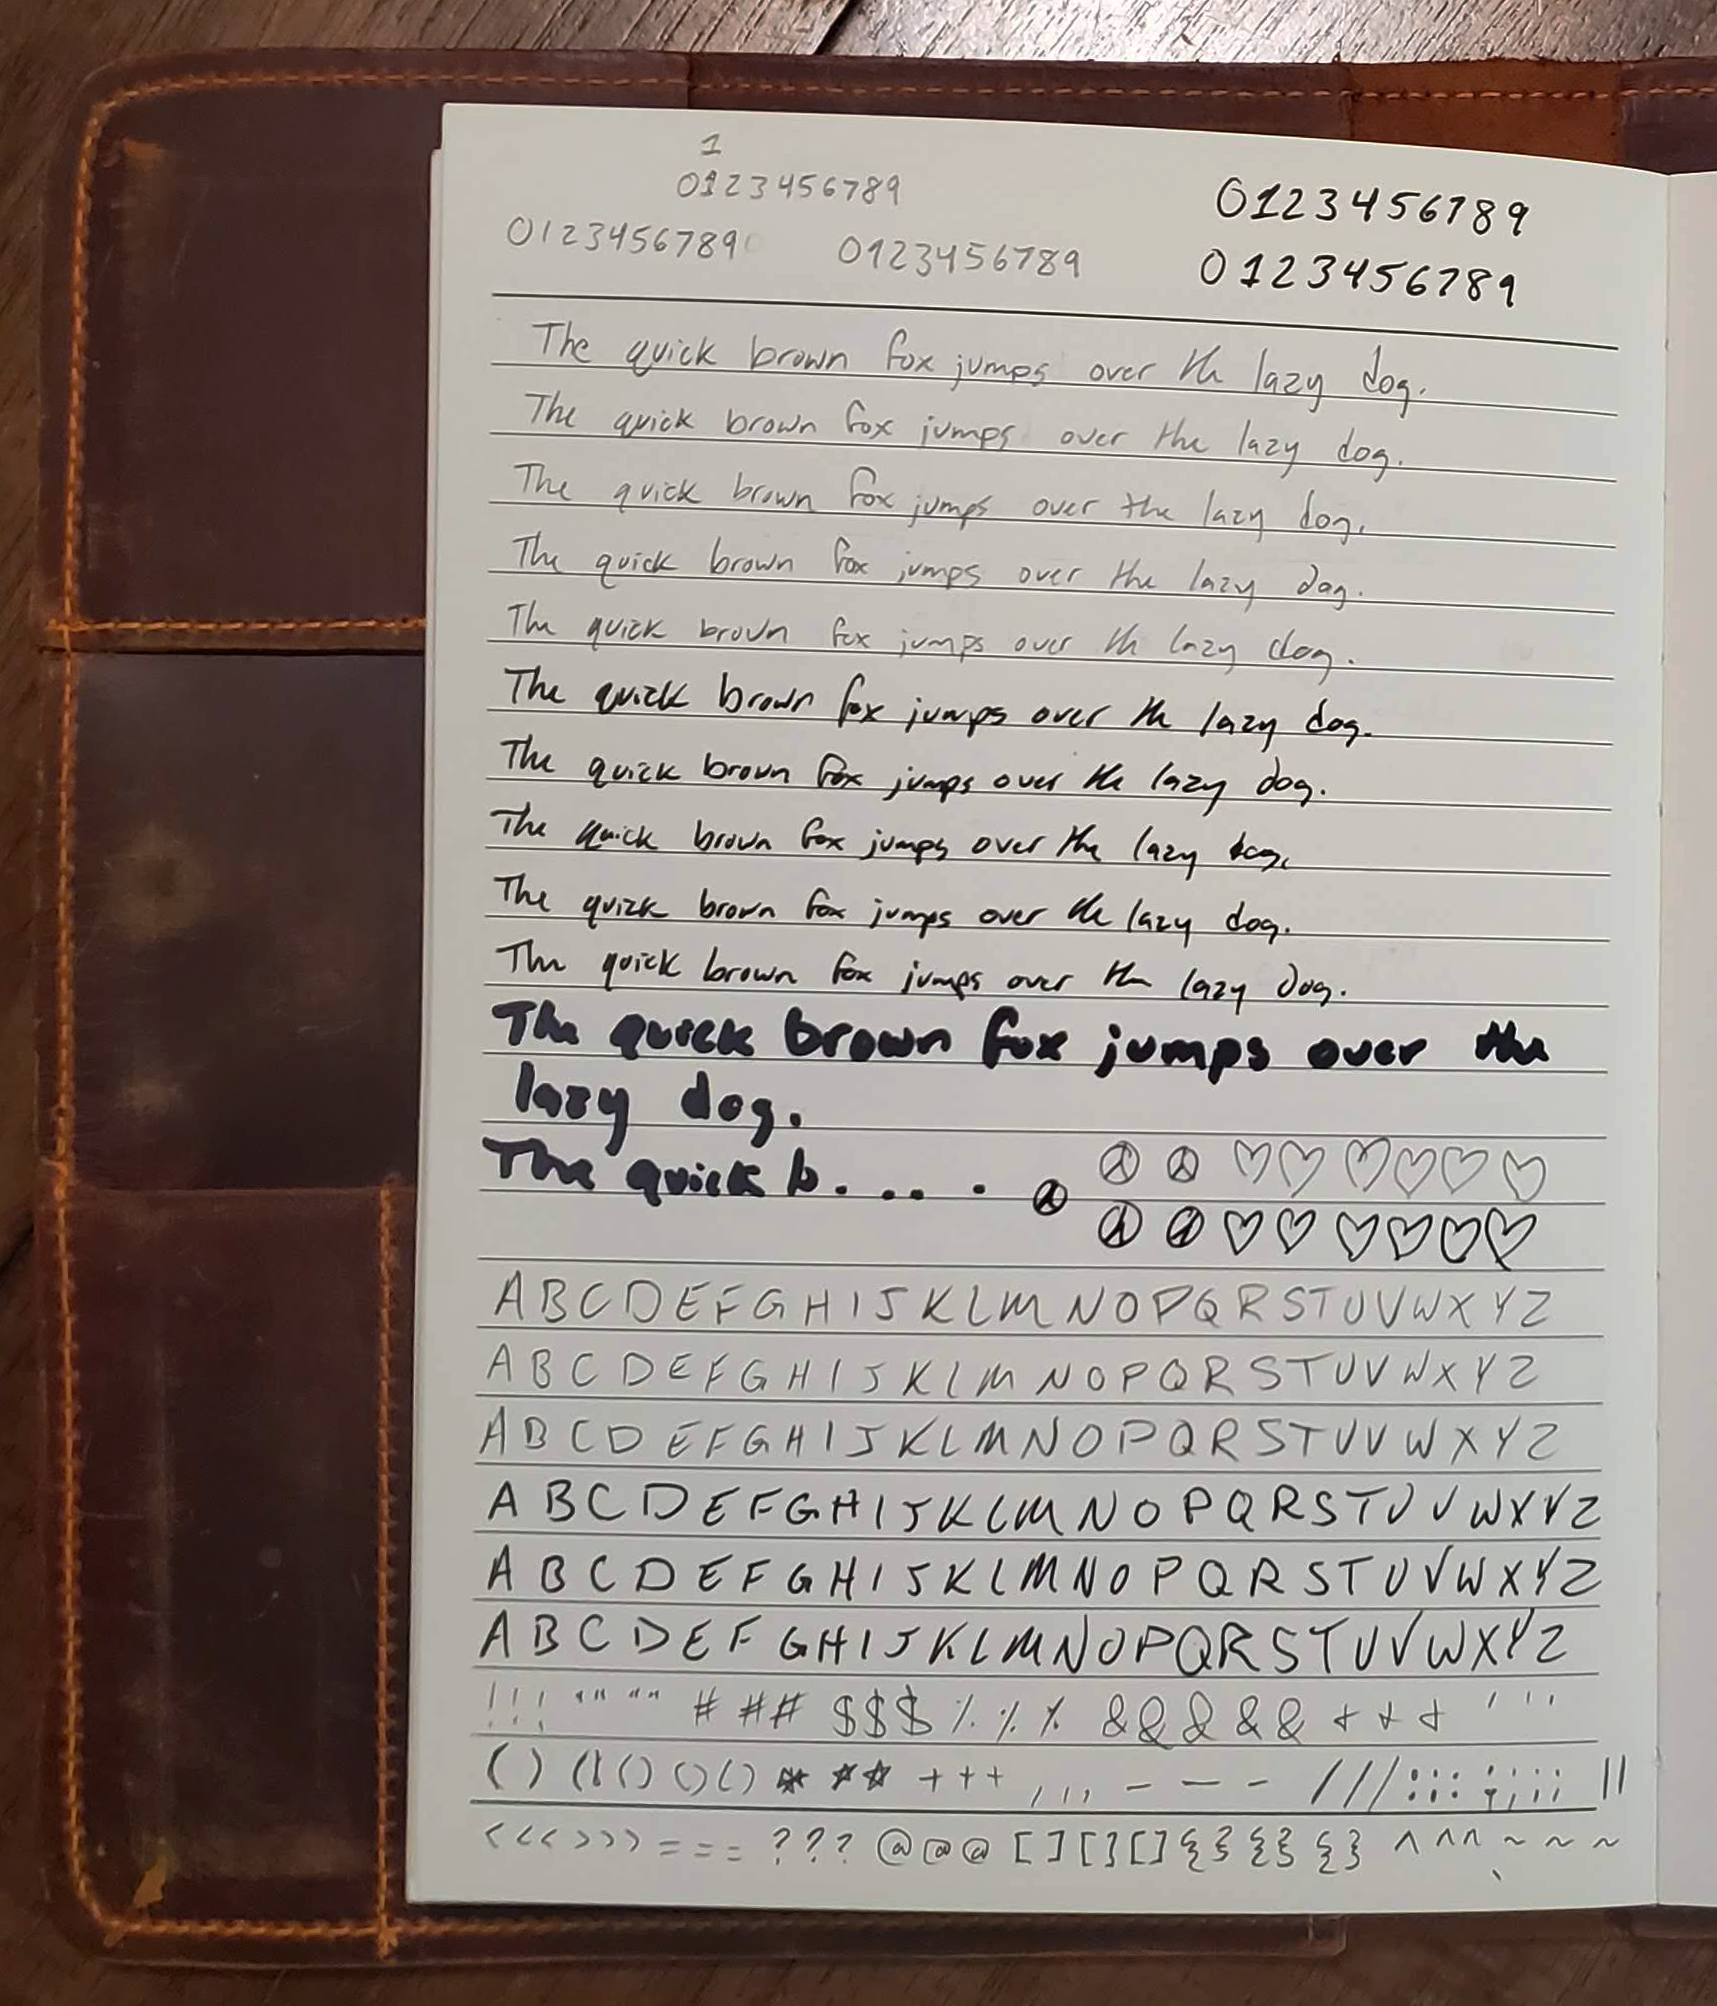 1
0123456789
0123456789
0123456789 0123456789
0123456789
The quick brown fox jumps over the lazy dog.
The quick brown fox jumps over the lazy dog.
The quick brown fox jumps over the lazy dog.
The quick brown fox jumps over the lazy dog.
The quick brown fox jumps over the lazy dog.
The quick brown fox jumps over the lazy dog.
The quick brown fox jumps over the lazy dog.
The quick brown fox jumps over the lazy dog.
The quick brown fox jumps over the lazy dog.
The quick brown fox jumps over the lazy dog.
The quick brown fox jumps over the
lazy dog.
The quick b.... ☮ ☮ ♡ ♡ ♡ ♡ ♡ ♡
☮ ☮ ☮ ♡ ♡ ♡ ♡ ♡ ♡
A B C D E F G H I J K L M N O P Q R S T U V W X Y Z
A B C D E F G H I J K L M N O P Q R S T U V W X Y Z
A B C D E F G H I J K L M N O P Q R S T U V W X Y Z
A B C D E F G H I J K L M N O P Q R S T U V W X Y Z
A B C D E F G H I J K L M N O P Q R S T U V W X Y Z
A B C D E F G H I J K L M N O P Q R S T U V W X Y Z
! ! ! " " " " # # # $ $ $ % % % & & & & & + + + ' ' '
( ) ( ( ( ) ( ) ( ) * * * + + + , , , - - - / / / : : : ; ; ; ; | |
< < < > > > = = = ? ? ? @ @ @ [ ] [ ] [ ] { } { } { } ^ ^ ^ ~ ~ ~
`